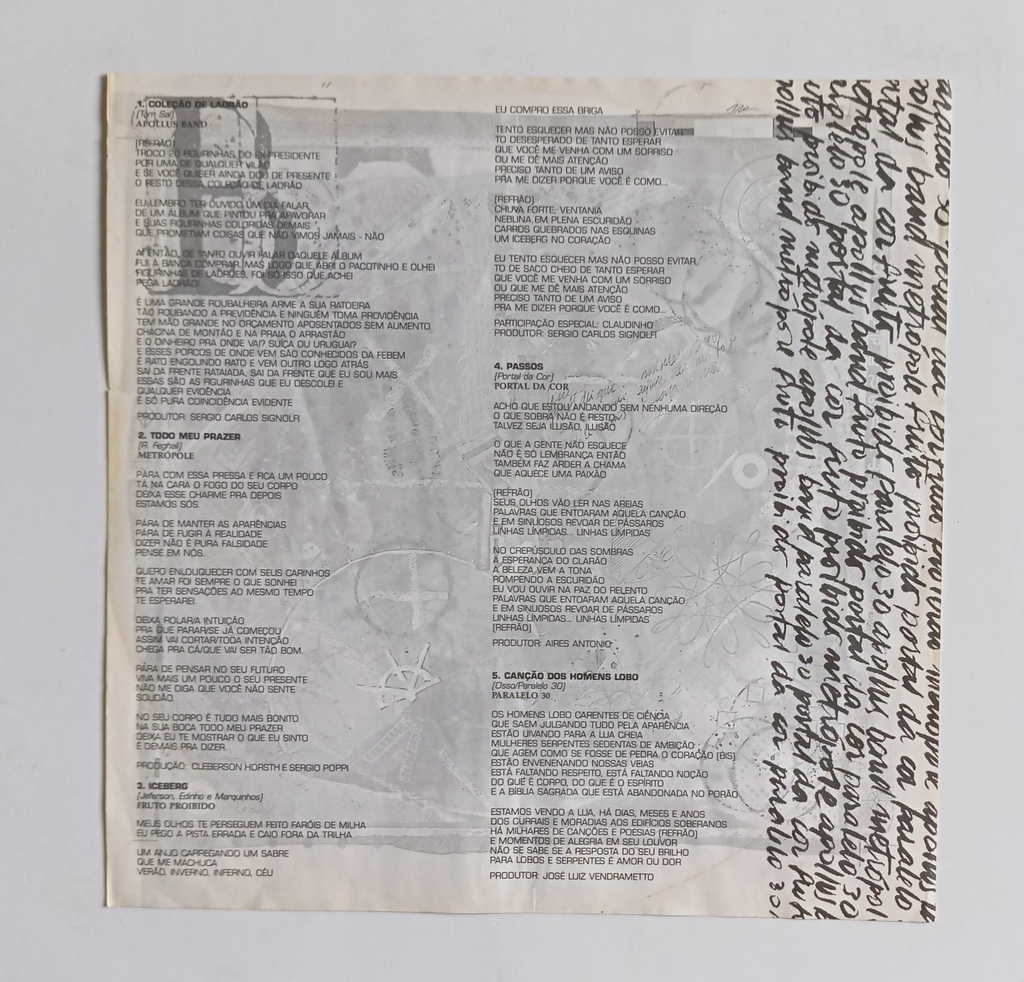 1. COLEÇÃO DE LADRÃO
(Tom Sal)
APOLLUS BAND
[REFRÃO]
TROCO 20 FIGURINHAS DO EX-PRESIDENTE
POR UMA DE QUALQUER VILÃO
E SE VOCÊ QUISER AINDA DOU DE PRESENTE
O RESTO DESSA COLEÇÃO DE LADRÃO
EU LEMBRO TER OUVIDO UM DIA FALAR
DE UM ÁLBUM QUE PINTOU PRA APAVORAR
E SUAS FIGURINHAS COLORIDAS DEMAIS
QUE PROMETIAM COISAS QUE NÃO VIMOS JAMAIS - NÃO
AÍ ENTÃO, DE TANTO OUVIR FALAR DAQUELE ÁLBUM
FUI A BANCA COMPRAR, MAS LOGO QUE ABRI O PACOTINHO E OLHEI
FIGURINHAS DE LADRÕES, FOI SÓ ISSO QUE ACHEI
PEGA LADRÃO!
É UMA GRANDE ROUBALHEIRA ARME A SUA RATOEIRA
TÃO ROUBANDO A PREVIDÊNCIA E NINGUÉM TOMA PROVIDÊNCIA
TEM MÃO GRANDE NO ORÇAMENTO APOSENTADOS SEM AUMENTO
CHACINA DE MONTÃO E NA PRAIA O ARRASTÃO
E O DINHEIRO PRA ONDE VAI? SUÍÇA OU URUGUAI?
E ESSES PORCOS DE ONDE VEM SÃO CONHECIDOS DA FEBEM
É RATO ENGOLINDO RATO E VEM OUTRO LOGO ATRÁS
SAI DA FRENTE RATAIADA, SAI DA FRENTE QUE EU SOU MAIS
ESSAS SÃO AS FIGURINHAS QUE EU DESCOLEI E
QUALQUER EVIDÊNCIA
É SÓ PURA COINCIDÊNCIA EVIDENTE
PRODUTOR: SERGIO CARLOS SIGNOLFI
2. TODO MEU PRAZER
(R. Feghali)
METRÓPOLE
PÁRA COM ESSA PRESSA E FICA UM POUCO
TÁ NA CARA O FOGO DO SEU CORPO
DEIXA ESSE CHARME PRA DEPOIS
ESTAMOS SÓS.
PÁRA DE MANTER AS APARÊNCIAS
PÁRA DE FUGIR A REALIDADE
DIZER NÃO É PURA FALSIDADE
PENSE EM NÓS.
QUERO ENLOUQUECER COM SEUS CARINHOS
TE AMAR FOI SEMPRE O QUE SONHEI
PRA TER SENSAÇÕES AO MESMO TEMPO
TE ESPERAREI.
DEIXA ROLAR/A INTUIÇÃO
PRA QUE PARAR/SE JÁ COMEÇOU
ASSIM VAI CORTAR/TODA INTENÇÃO
CHEGA PRA CÁ/QUE VAI SER TÃO BOM.
PÁRA DE PENSAR NO SEU FUTURO
VIVA MAIS UM POUCO O SEU PRESENTE
NÃO ME DIGA QUE VOCÊ NÃO SENTE
SOLIDÃO.
NO SEU CORPO É TUDO MAIS BONITO
NA SUA BOCA TODO MEU PRAZER
DEIXA EU TE MOSTRAR O QUE EU SINTO
É DEMAIS PRA DIZER.
PRODUÇÃO: CLEBERSON HORSTH E SERGIO POPPI
3. ICEBERG
(Jeferson, Edinho e Marquinhos)
FRUTO PROIBIDO
MEUS OLHOS TE PERSEGUEM FEITO FARÓIS DE MILHA
EU PEGO A PISTA ERRADA E CAIO FORA DA TRILHA
UM ANJO CARREGANDO UM SABRE
QUE ME MACHUCA
VERÃO, INVERNO, INFERNO, CÉU
EU COMPRO ESSA BRIGA
TENTO ESQUECER MAS NÃO POSSO EVITAR
TO DESESPERADO DE TANTO ESPERAR
QUE VOCÊ ME VENHA COM UM SORRISO
OU ME DÊ MAIS ATENÇÃO
PRECISO TANTO DE UM AVISO
PRA ME DIZER PORQUE VOCÊ É COMO...
[REFRÃO]
CHUVA FORTE, VENTANIA
NEBLINA EM PLENA ESCURIDÃO
CARROS QUEBRADOS NAS ESQUINAS
UM ICEBERG NO CORAÇÃO
EU TENTO ESQUECER MAS NÃO POSSO EVITAR,
TO DE SACO CHEIO DE TANTO ESPERAR
QUE VOCÊ ME VENHA COM UM SORRISO
OU QUE ME DÊ MAIS ATENÇÃO
PRECISO TANTO DE UM AVISO
PRA ME DIZER PORQUE VOCÊ É COMO...
PARTICIPAÇÃO ESPECIAL: CLAUDINHO
PRODUTOR: SERGIO CARLOS SIGNOLFI
4. PASSOS
(Portal da Cor)
PORTAL DA COR
ACHO QUE ESTOU ANDANDO SEM NENHUMA DIREÇÃO
O QUE SOBRA NÃO É RESTO
TALVEZ SEJA ILUSÃO, ILUSÃO
O QUE A GENTE NÃO ESQUECE
NÃO É SÓ LEMBRANÇA ENTÃO
TAMBÉM FAZ ARDER A CHAMA
QUE AQUECE UMA PAIXÃO
[REFRÃO]
SEUS OLHOS VÃO LER NAS AREIAS
PALAVRAS QUE ENTOARAM AQUELA CANÇÃO
E EM SINUOSOS REVOAR DE PÁSSAROS
LINHAS LÍMPIDAS... LINHAS LÍMPIDAS
NO CREPÚSCULO DAS SOMBRAS
A ESPERANÇA DO CLARÃO
A BELEZA VEM A TONA
ROMPENDO A ESCURIDÃO
EU VOU OUVIR NA PAZ DO RELENTO
PALAVRAS QUE ENTOARAM AQUELA CANÇÃO
E EM SINUOSOS REVOAR DE PÁSSAROS
LINHAS LÍMPIDAS... LINHAS LÍMPIDAS
[REFRÃO]
PRODUTOR: AIRES ANTONIO
5. CANÇÃO DOS HOMENS LOBO
(Osso/Paralelo 30)
PARALELO 30
OS HOMENS LOBO CARENTES DE CIÊNCIA
QUE SAEM JULGANDO TUDO PELA APARÊNCIA
ESTÃO UIVANDO PARA A LUA CHEIA
MULHERES SERPENTES SEDENTAS DE AMBIÇÃO
QUE AGEM COMO SE FOSSE DE PEDRA O CORAÇÃO [BIS]
ESTÃO ENVENENANDO NOSSAS VEIAS
ESTÁ FALTANDO RESPEITO, ESTÁ FALTANDO NOÇÃO
DO QUE É CORPO, DO QUE É O ESPÍRITO
E A BÍBLIA SAGRADA QUE ESTÁ ABANDONADA NO PORÃO
ESTAMOS VENDO A LUA, HÁ DIAS, MESES E ANOS
DOS CURRAIS E MORADIAS AOS EDIFÍCIOS SOBERANOS
HÁ MILHARES DE CANÇÕES E POESIAS [REFRÃO]
E MOMENTOS DE ALEGRIA EM SEU LOUVOR
NÃO SE SABE SE A RESPOSTA DO SEU BRILHO
PARA LOBOS E SERPENTES É AMOR OU DOR
PRODUTOR: JOSÉ LUIZ VENDRAMETTO
band metrópole fruto proibido portal da
portal da cor fruto proibido paralelo 30 apollus band
metrópole apollus band fruto proibido portal da cor paralelo 30
paralelo 30 portal da cor fruto proibido metrópole apollus
fruto proibido metrópole apollus band paralelo 30 portal da cor
band metrópole fruto proibido portal da cor paralelo 30